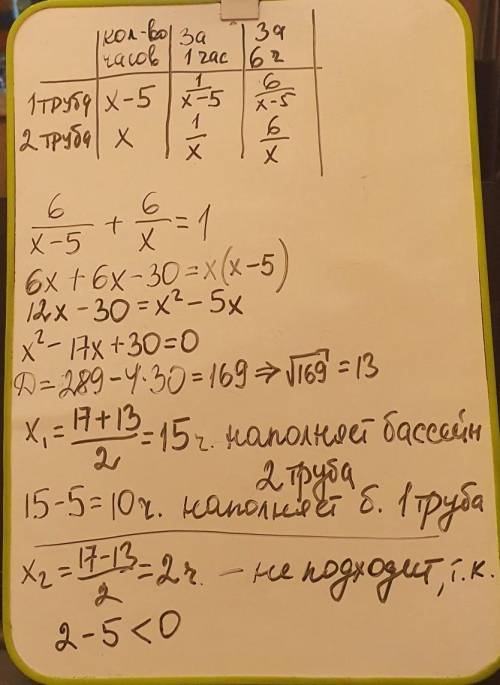 кол-во часов | за 1 час | за 6 ч
1 труба | x-5 | 1/(x-5) | 6/(x-5)
2 труба | x | 1/x | 6/x
6/(x-5) + 6/x = 1
6x + 6x - 30 = x(x-5)
12x - 30 = x² - 5x
x² - 17x + 30 = 0
D = 289 - 4·30 = 169 ⇒ √169 = 13
x₁ = (17+13)/2 = 15 ч. наполняет бассейн
2 труба
15-5 = 10 ч. наполняет б. 1 труба
x₂ = (17-13)/2 = 2 ч. - не подходит, т.к.
2-5 < 0